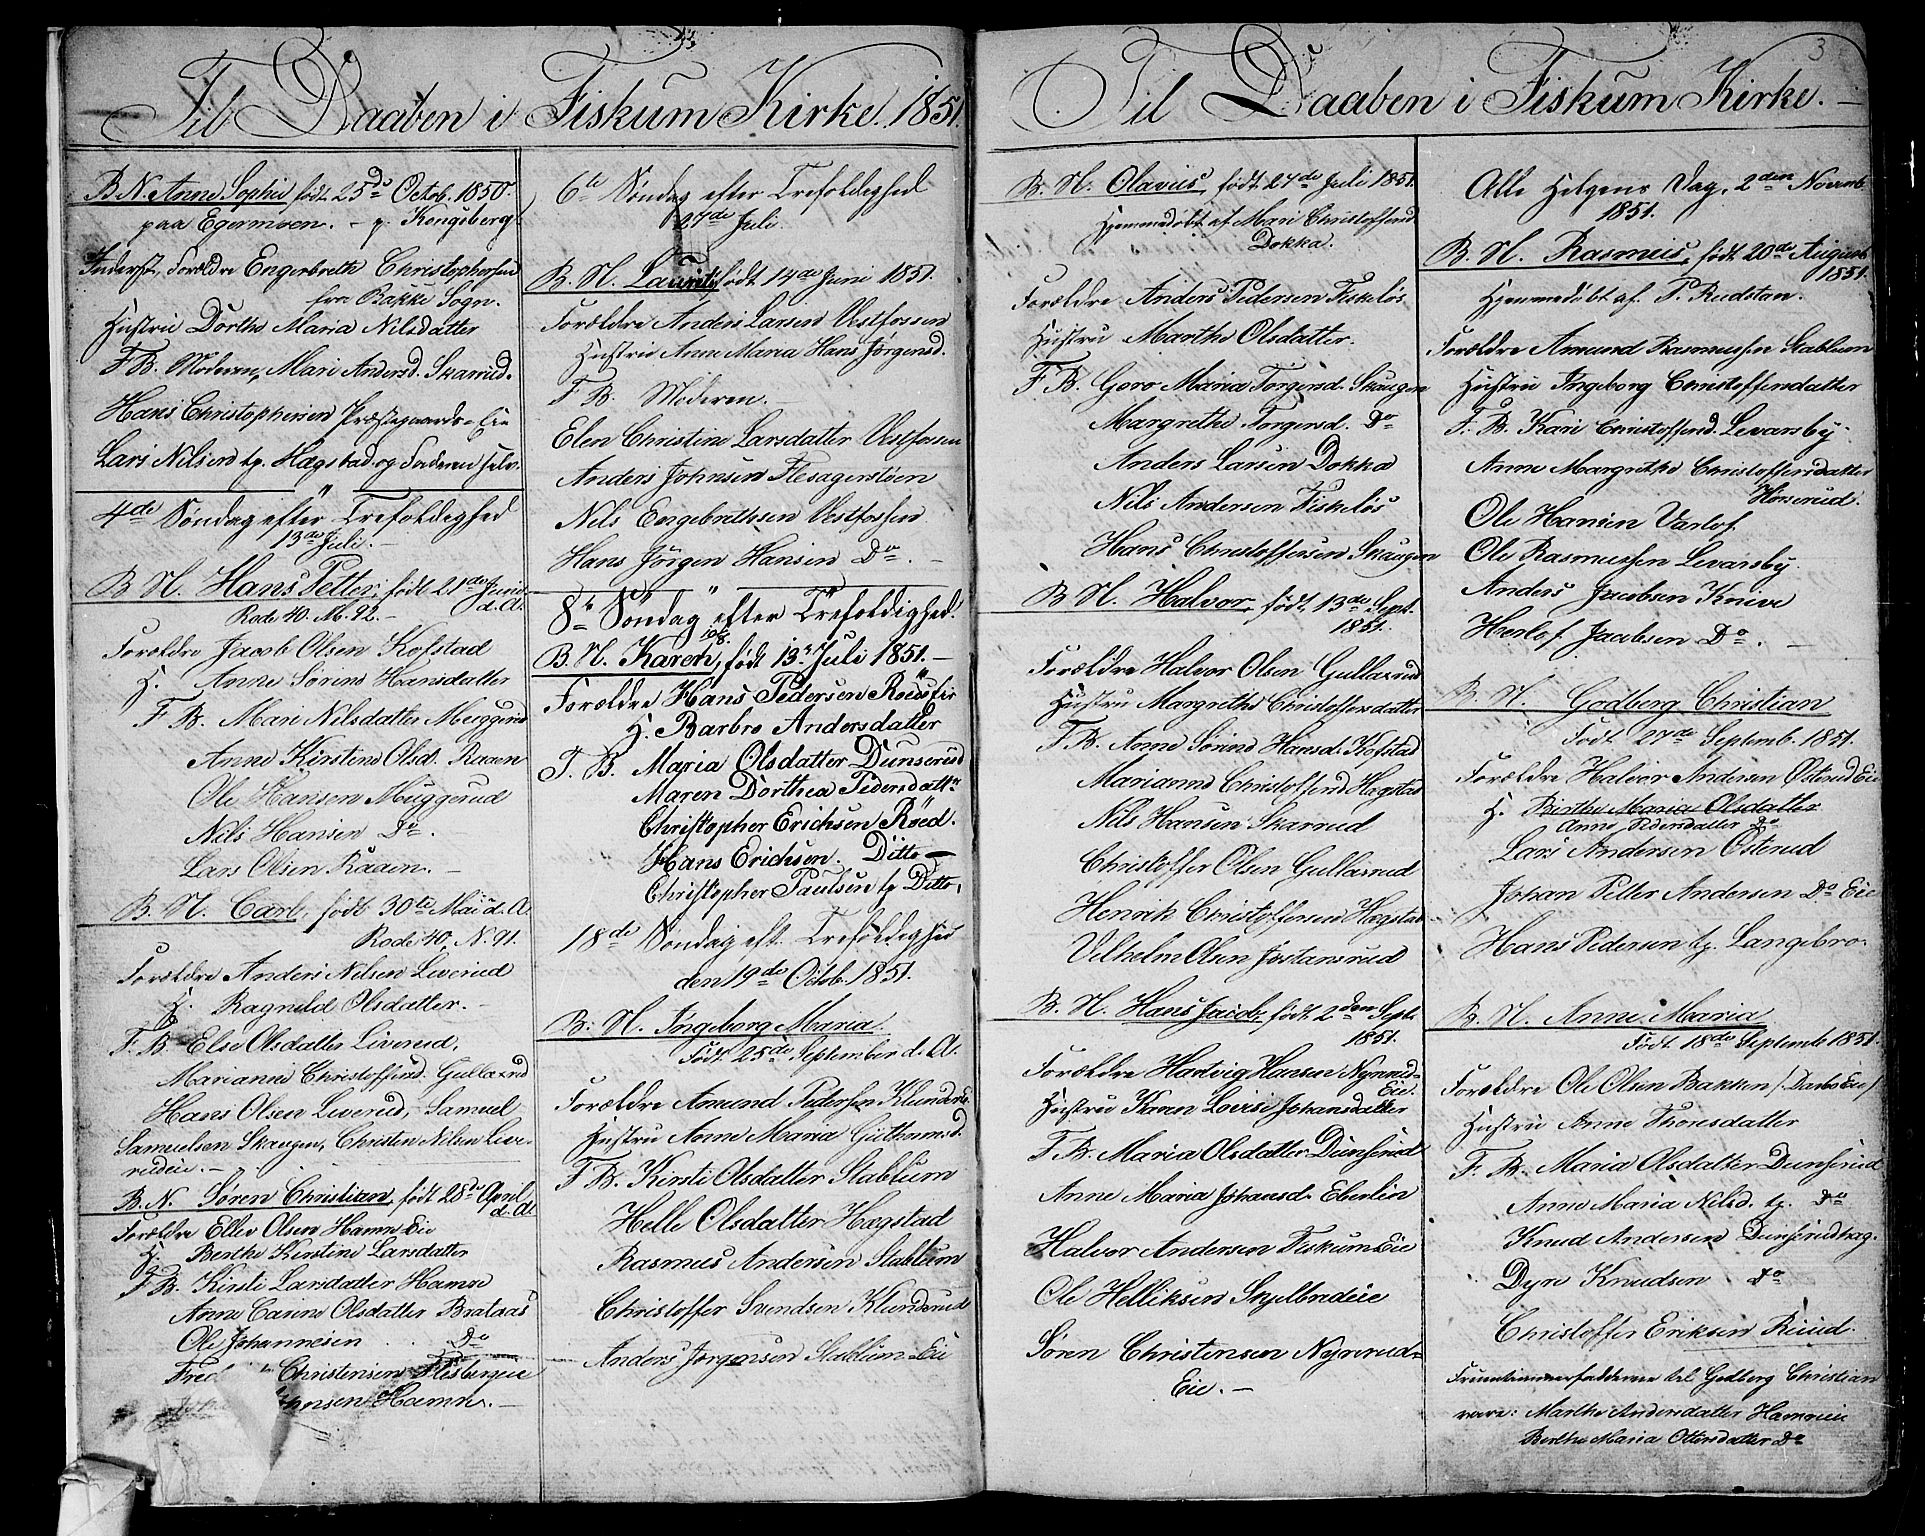 Til Daaben i Fiskum Kirke. 1851.
B. N. Anne Sophie født 25de Octob. 1850.
paa Egermoen. - p. Kongsberg
Inderst, Forældre Engerbreth Christophersen
fra Bakke Sogn.
Hustru Dorthe Maria Nilsdatter
F. B. Moderen, Mari Andersd. Skarrud.
Hans Christophersen Præstegaards-Eie
Lars Nilsen tp. Hægstad og Faderen selv.
4de Søndag efter Trefoldighed
13de Juli. -
B. N. Hans Petter, født 21de Juni
d. A.
Rode 40. No. 92. -
Forældre Jacob Olsen Kofstad
H. Anne Sørine Hansdatter
F. B. Mari Nilsdatter Muggerud
Anne Kirstine Olsd. Raaen
Ole Hansen Muggerud
Nils Hansen Do.
Lars Olsen Raaen. -
B. N. Carl, født 30te Mai d. A.
Rode 40, N. 91.
Forældre Anders Nilsen Liverud
H. Ragnild Olsdatter. -
F. B. Else Olsdatter Liverud,
Marianne Christoffersd. Gullaxrud
Hans Olsen Liverud, Samuel
Samuelsen Skaugen, Christen Nilsen Live-
rudeie. -
B. N. Søren Christian, født 28de April
d. A.
Forældre Ellev Olsen Hamre Eie
H. Berthe Kirstine Larsdatter
F. B. Kirsti Larsdatter Hamre
Anne Carine Olsdatter Brataas
Ole Johannesen Do
Fred Christensen Flesbergeie
nsen Hamre. -
6te Søndag efter Trefoldighed
27de Juli.
B. N. Lauritz født 14de Juni 1851.
Forældre Anders Larsen Vestfossen
Hustru Anne Maria Hans Jørgensd.
F. B. Moderen. -
Elen Christine Larsdatter Vestfossen
Anders Johnsen Flesagerstøen
Nils Engebrethsen Vestfossen
Hans Jørgen Hansen Do. -
8de Søndag efter Trefoldighed.
10/8.
B. N. Karen, født 13de Juli 1851. -
Forældre Hans Pedersen
H. Barbro Andersdatter
F. B. Maria Olsdatter Dunserud
Maren Dorthea Pedersdattr
Christopher Erichsen Röed.
Hans Erichsen. Ditto -
Christopher Paulsen tp Ditto,
18de Søndag eft. Trefoldighed
den 19de Octob. 1851.
B. N. Ingeborg Maria
Født 25de September d. A.
Forældre Amund Pedersen Klunderud
Hustru Anne Maria Guthormsd.
F. B. Kirsti Olsdatter Stablum
Helle Olsdatter Hægstad
Rasmus Andersen Stablum
Christoffer Svendsen Klunderud
Anders Jørgensen Stablum Eie
3
Til Daaben i Fiskum Kirke. -
B. N. Olavus, født 27de Juli 1851.
Hjemmedøbt af Mari Christoffersd
Dokka.
Forældre Anders Pedersen Fiskeløs
Hustru Marthe Olsdatter.
F. B. Goro Maria Torgersd. Skaugen
Margrethe Torgersd. Do
Anders Larsen Dokka
Nils Andersen Fiskeløs
Hans Christoffersen Skaugen
B. N. Halvor, født 13de Sept.
1851.
Forældre Halvor Olsen Gullaxrud
Hustru Margrethe Christoffersdatter
F. B. Anne Sørine Hansd. Kofstad
Marianne Christoffersd Hægstad
Nils Hansen Skarrud
Christoffer Olsen Gullaxrud
Henrik Christoffersen Hægstad
Vilhelm Olsen Jøstansrud
B. N. Hans Jacob, født 2den Sept.
1851.
Forældre Hartvig Hansen Nyrrud-
Eie.
Hustru Karen Lovise Johansdatter
F. B. Maria Olsdatter Dunserud
Anne Maria Johansd. Eberlin
Halvor Andersen Fiskum Eie
Ole Helliksen Skjelbredeie
Søren Christensen Nyrrud-
Eie. -
Alle Helgens Dag. 2den Novemb.
1851.
B. N. Rasmus, født 20de August
1851.
Hjemmedøbt af P. Rudstan.
Forældre Amund Rasmussen Stablum
Hustru Ingeborg Christoffersdatter
F. B. Kari Christoffersd. Levorsby
Anne Margrethe Christoffersdatter
Horserud.
Ole Hansen Varlo.
Ole Rasmussen Levorsby.
Anders Jacobsen Knive
Herlof Jacobsen Do. -
B. N. Godberg Christian
Født 27de Septemb. 1851.
Forældre Halvor Andersen Østerud Eie
H. Birthe Maria Olsdatter
Anne Pedersdatter Do
Lars Andersen Østerud
Johan Petter Andersen Do Eie
Hans Pedersen tp. Langebro.
B. N. Anne Maria
Født 18de Septemb 1851.
Forældre Ole Olsen Bakken / Darbo Eie /
Hustru Anne Thoresdatter
F. B. Maria Olsdatter Dunserud
Anne Maria Nilsd. tp. Do
Knud Andersen Dunserudhag.
Dyre Knudsen Do
Christoffer Eriksen Ruud.
til Godberg Christian
vare: Marthe Andersdatter Hamreeie
Berthe Maria Ottersdatter Do